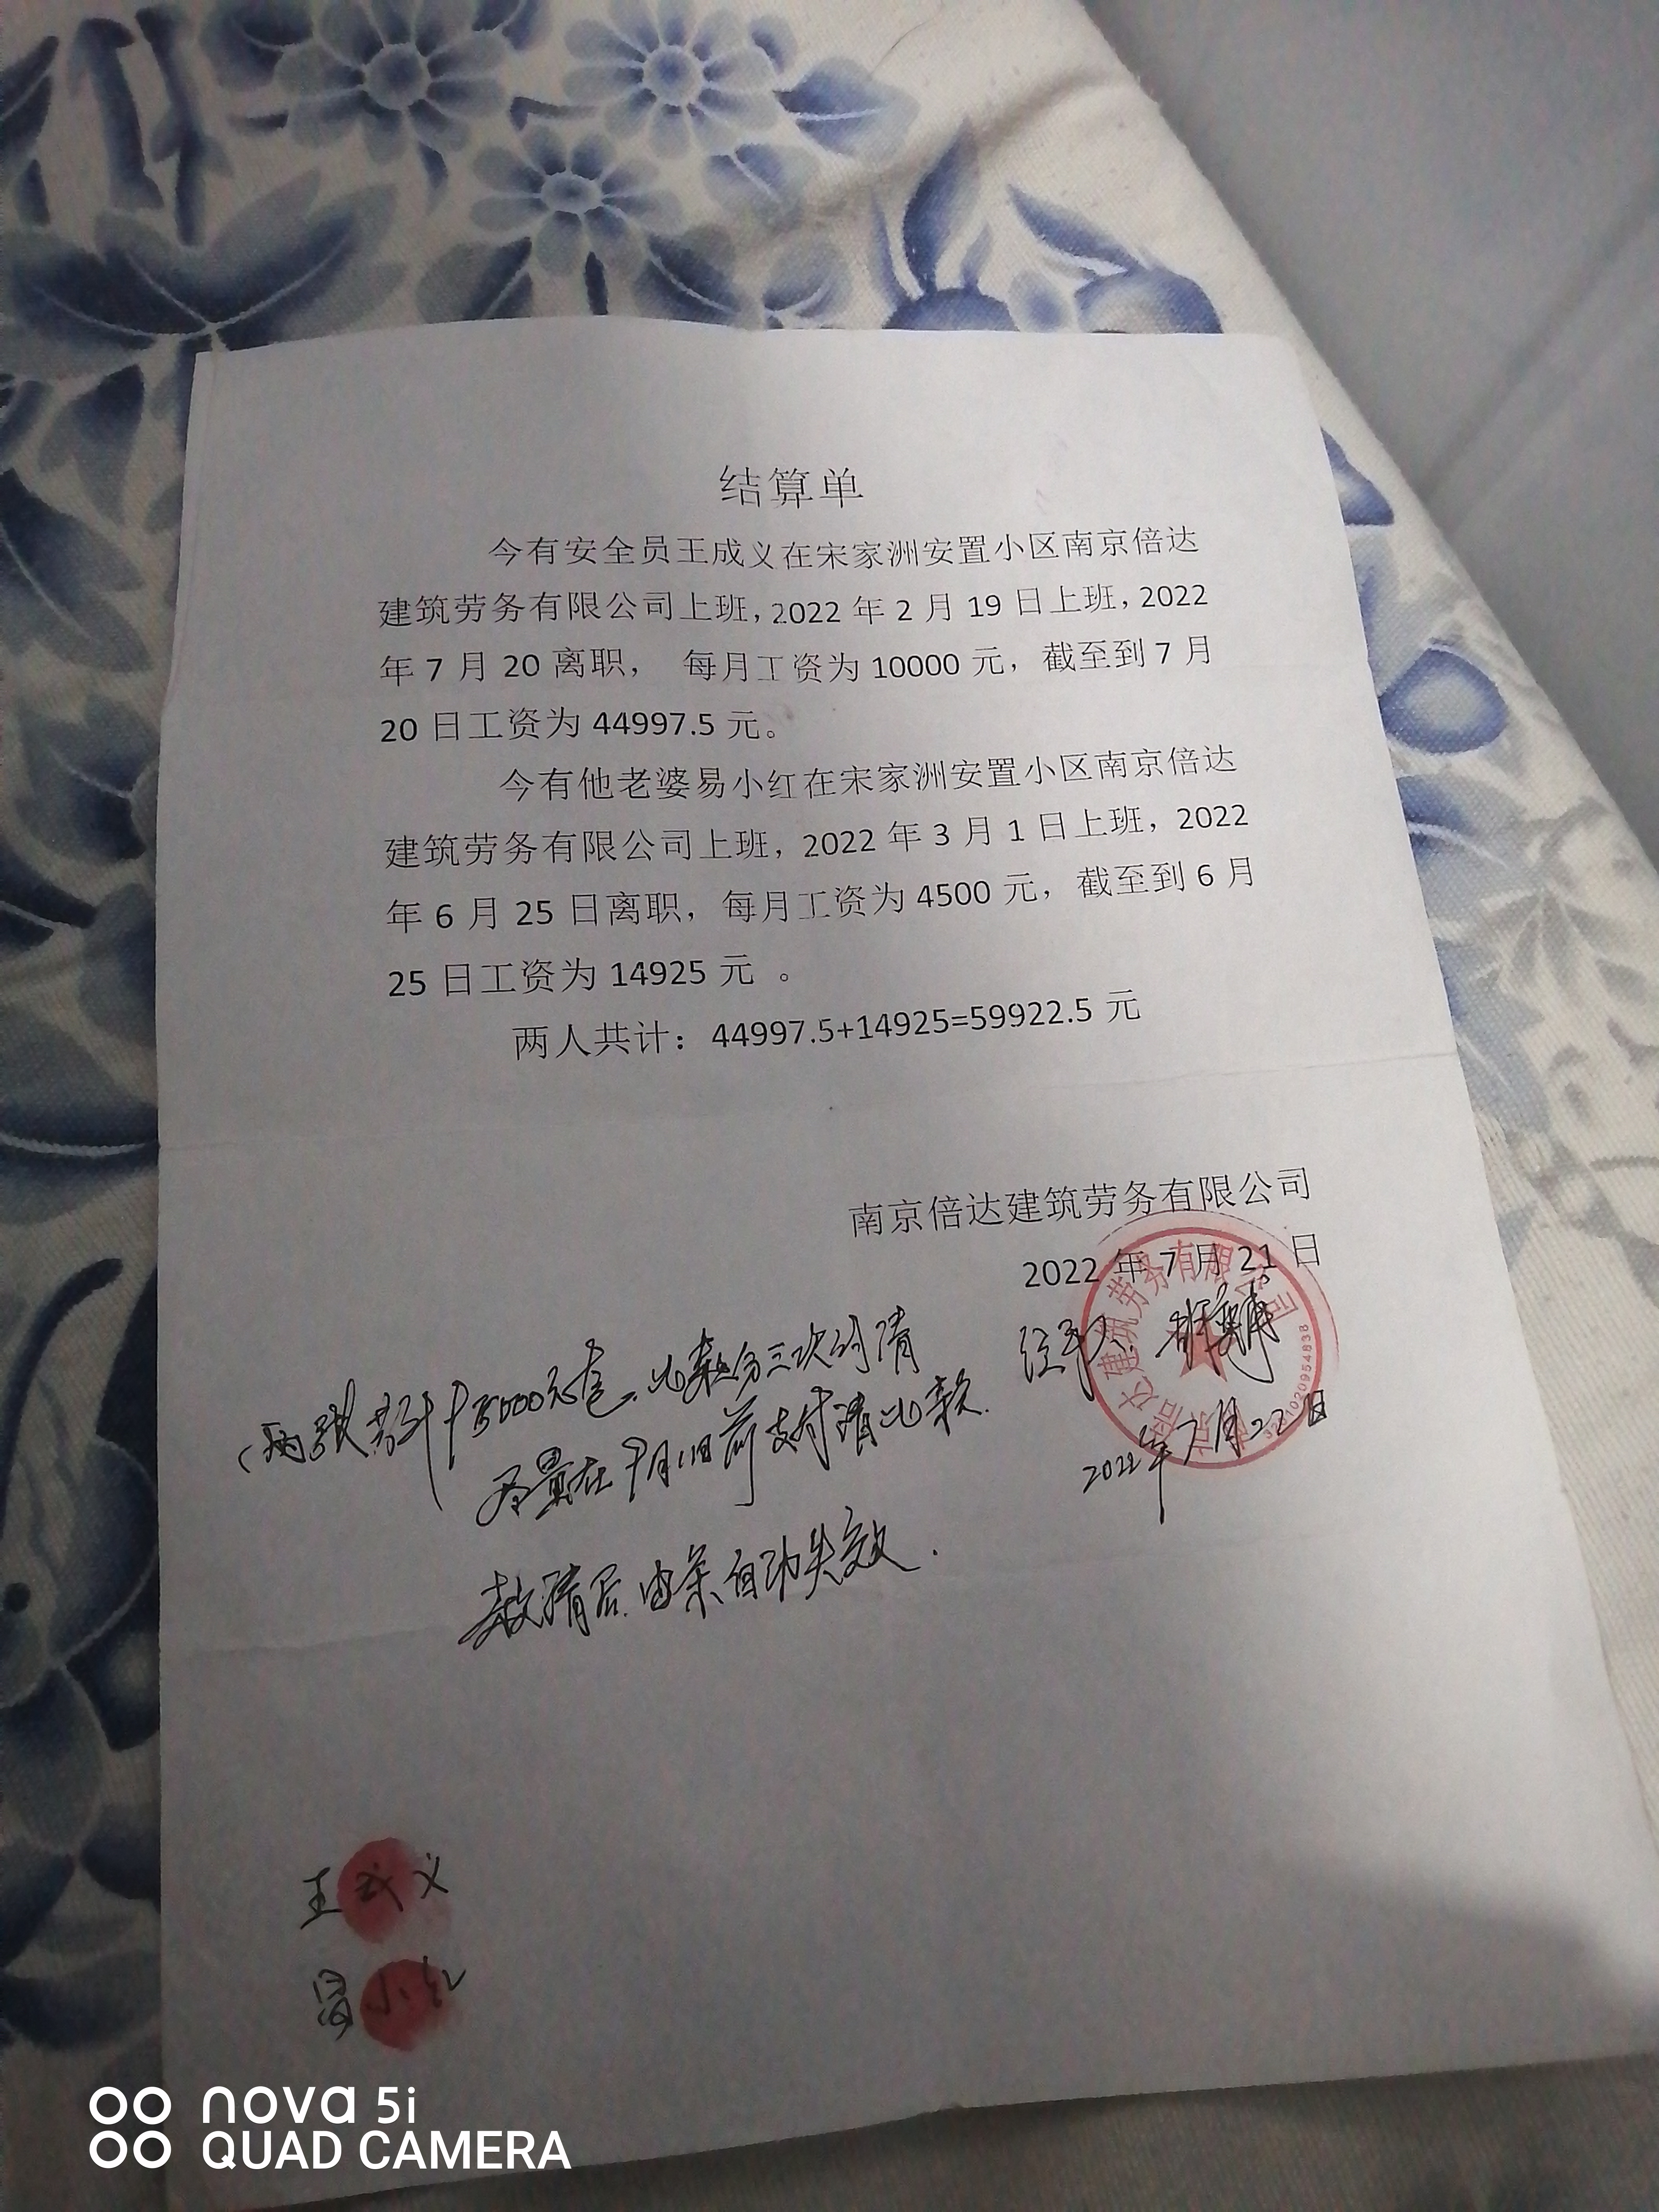 结算单
今有安全员王成义在宋家洲安置小区南京倍达
建筑劳务有限公司上班,2022年2月19日上班,2022
年7月20离职， 每月工资为10000元，截至到7月
20日工资为44997.5元。
今有他老婆易小红在宋家洲安置小区南京倍达
建筑劳务有限公司上班，2022年3月1日上班，2022
年6月25日离职，每月工资为4500元，截至到6月
25日工资为14925元 。
两人共计：44997.5+14925=59922.5元
南京倍达建筑劳务有限公司
2022年7月21日
建筑劳务有限公司
经手人:
2022年7月22日
此款分三次付清
尽量在9月1日前支付清此款.
款清后.此条自动失效.
王成义
易小红
nova 5i
QUAD CAMERA